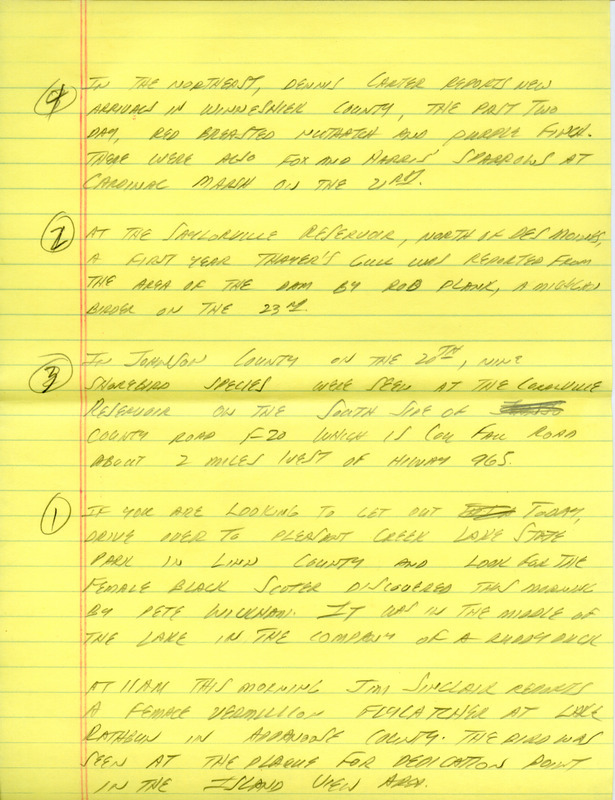 4 IN THE NORTHEAST, DENNIS CARTER REPORTS NEW
ARRIVALS IN WINNESHIEK COUNTY, THE PAST TWO
DAY, RED BREASTED NUTHATCH AND PURPLE FINCH.
THERE WERE ALSO FOX AND HARRIS' SPARROWS AT
CARDINAL MARSH ON THE 21ST.
2 AT THE SAYLORVILLE RESERVOIR, NORTH OF DES MOINES,
A FIRST YEAR THAYER'S GULL WAS REPORTED FROM
THE AREA OF THE DAM BY ROD PLANK, A MICHIGAN
BIRDER ON THE 23RD.
3 IN JOHNSON COUNTY ON THE 20TH, NINE
SHOREBIRD SPECIES WERE SEEN AT THE CORALVILLE
RESERVOIR ON THE SOUTH SIDE OF
COUNTY ROAD F-20 WHICH IS COU FALL ROAD
ABOUT 2 MILES WEST OF HIWAY 965.
1 IF YOU ARE LOOKING TO GET OUT TODAY,
DRIVE OVER TO PLEASANT CREEK LAKE STATE
PARK IN LINN COUNTY AND LOOK FOR THE
FEMALE BLACK SCOTER DISCOVERED THIS MORNING
BY PETE WICKHAM. IT WAS IN THE MIDDLE OF
THE LAKE IN THE COMPANY OF A RUDDY DUCK
AT 11AM THIS MORNING JIM SINCLAIR REPORTS
A FEMALE VERMILLION FLYCATCHER AT LAKE
RATHBUN IN APPANOOSE COUNTY. THE BIRD WAS
SEEN AT THE PLAQUE FOR DEDICATION POINT
IN THE ISLAND VIEW AREA.